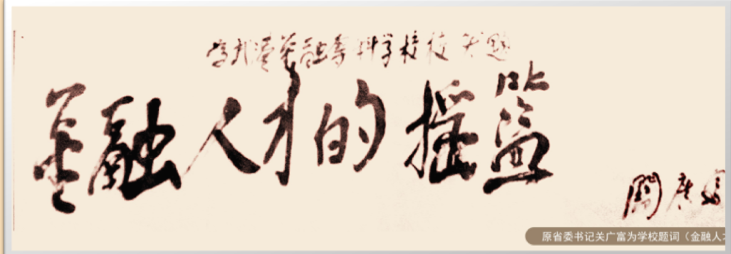 为武漢金融專科学校校
金融人才的摇篮
關廣富
原省委书记关广富为学校题词（金融人